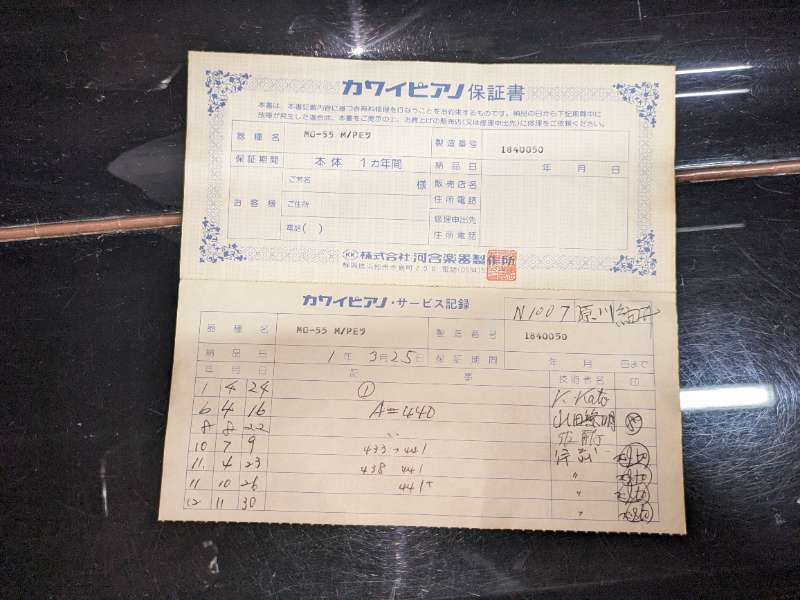 カワイピアノ 保証書
本書は、本書記載内容に基づき無料修理を行なうことをお約束するものです。納品の日から下記期間中に
故障が発生した場合は、本書をご提示の上、お買上げの販売店(又は修理申出先)に修理をご依頼ください。
器種名 MO-55 M/PEラ 製造番号 1840050
保証期間 本体 1ヵ年間 納品日 年 月 日
お客様 ご芳名 様 販売店名
ご住所 住所電話
電話( ) 修理申出先
住所電話
株式会社 河合楽器製作所
カワイピアノ・サービス記録 N1007
器種名 MO-55 M/PEラ 製造番号 1840050
納品日 1年 3月25日 保証期間 年 月 日まで
年 月 日 記 事 技術者名 印
1 4 24 ① K. Kato
6 4 16 A=440
8 8 22
10 7 9 433→441
11 4 23 438 441 〃
11 10 26 441+ 〃
12 11 30 〃